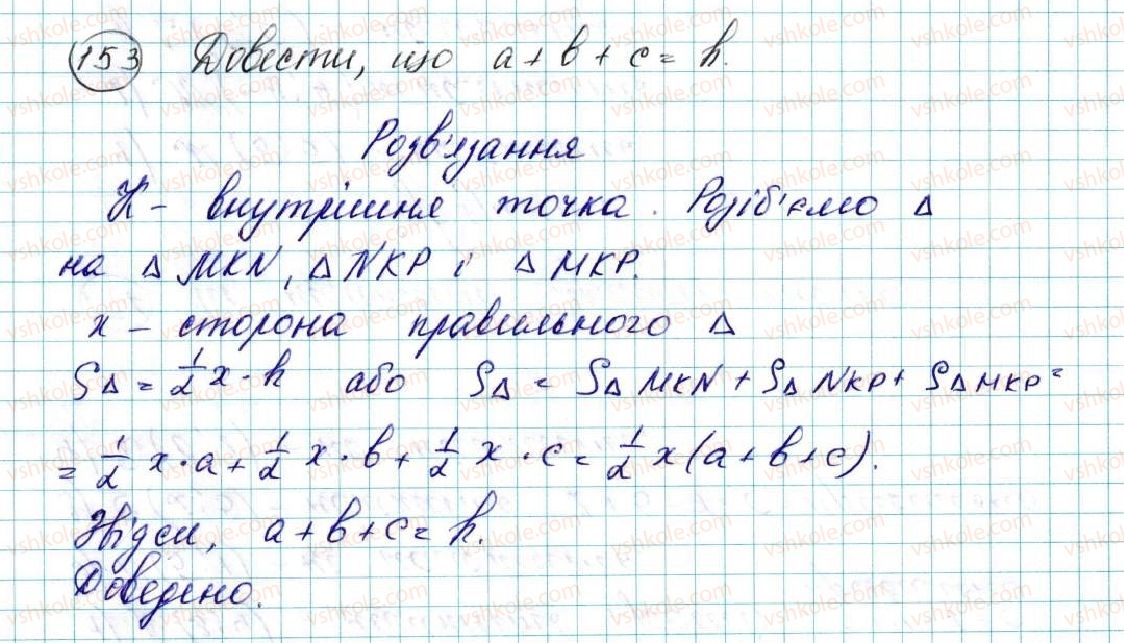 153 Довести, що a + b + c = h.
Розв'язання
K - внутрішня точка. Розіб'ємо Δ
на Δ MKN, Δ NKP і Δ MKP.
x - сторона правильного Δ
SΔ = 1/2 x · h або SΔ = SΔ MKN + SΔ NKP + SΔ MKP =
= 1/2 x · a + 1/2 x · b + 1/2 x · c = 1/2 x (a + b + c).
Звідси, a + b + c = h.
Доведено.